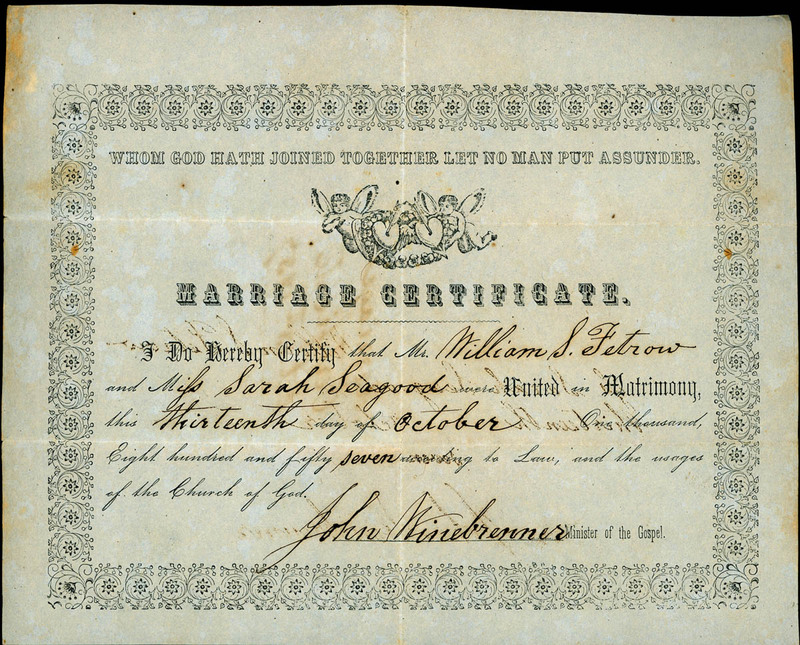 WHOM GOD HATH JOINED TOGETHER LET NO MAN PUT ASSUNDER.
MARRIAGE CERTIFICATE.
I Do Hereby Certify that Mr. William S. Fetrow
and Miss Sarah Seagood were United in Matrimony,
this thirteenth day of October One thousand,
Eight hundred and fifty seven according to Law, and the usages
of the Church of God.
John Winebrenner Minister of the Gospel.